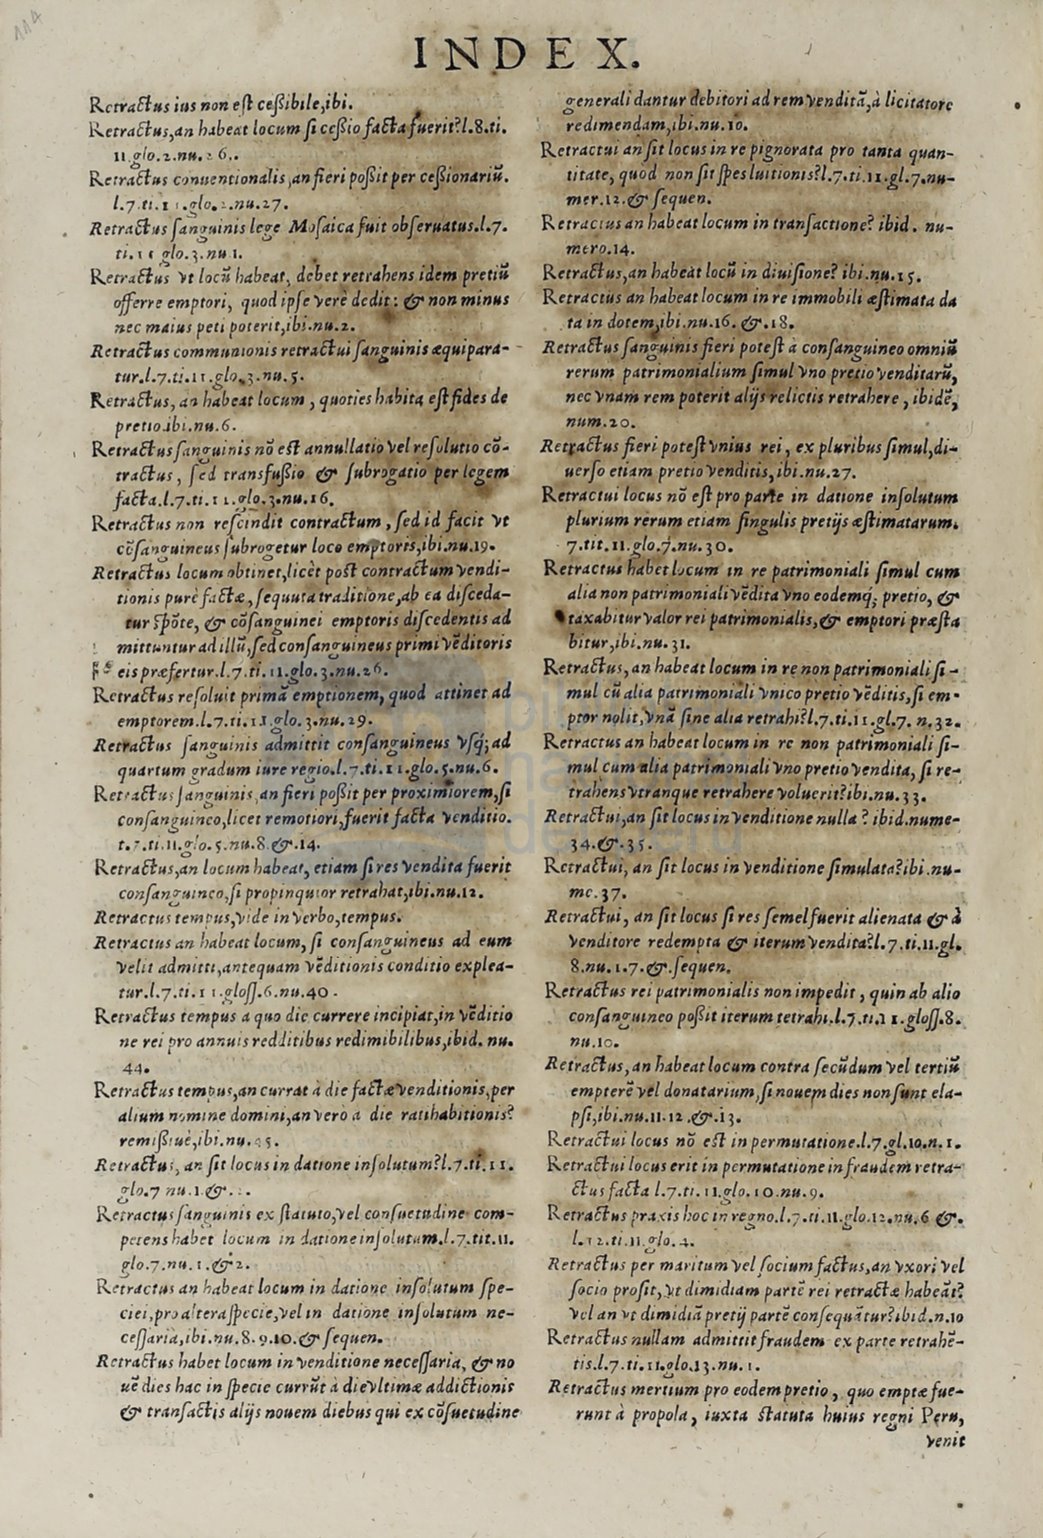 INDEX.
Retractus ius non est cessibile, ibi.
Retractus, an habeat locum si cessio facta fuerit? l.8.ti.
11.glo.2.nu.26..
Retractus conuentionalis, an fieri possit per cessionariũ.
l.7.ti.11.glo.2.nu.27.
Retractus sanguinis lege Mosaica fuit obseruatus.l.7.
ti.11 glo.3.nu 1.
Retractus vt locũ habeat, debet retrahens idem pretiũ
offerre emptori, quod ipse verè dedit: & non minus
nec maius peti poterit, ibi.nu.2.
Retractus communionis retractui sanguinis æquipara-
tur.l.7.ti.11.glo.3.nu.5.
Retractus, an habeat locum, quoties habita est fides de
pretio.ibi.nu.6.
Retractus sanguinis nõ est annullatio vel resolutio cõ-
tractus, sed transfussio & subrogatio per legem
facta.l.7.ti.11.glo.3.nu.16.
Retractus non rescindit contractum, sed id facit vt
cõsanguineus subrogetur loco emptoris, ibi.nu.19.
Retractus locum obtinet, licèt post contractum vendi-
tionis purè factæ, sequuta traditione, ab ea disceda-
tur spõte, & cõsanguinei emptoris discedentis ad
mittuntur ad illũ, sed consanguineus primi vẽditoris
eis præfertur.l.7.ti.11.glo.3.nu.26.
Retractus resoluit primã emptionem, quod attinet ad
emptorem.l.7.ti.11.glo.3.nu.29.
Retractus sanguinis admittit consanguineus vsq; ad
quartum gradum iure regio.l.7.ti.11.glo.5.nu.6.
Retractus sanguinis, an fieri possit per proximiorem, si
consanguineo, licet remotiori, fuerit facta venditio.
t.7.ti.11.glo.5.nu.8.&.14.
Retractus, an locum habeat, etiam si res vendita fuerit
consanguineo, si propinquior retrahat, ibi.nu.12.
Retractus tempus, vide in verbo, tempus.
Retractus an habeat locum, si consanguineus ad eum
velit admitti, antequam vẽditionis conditio explea-
tur.l.7.ti.11.gloss.6.nu.40.
Retractus tempus a quo die currere incipiat, in vẽditio
ne rei pro annuis redditibus redimibilibus, ibid. nu.
44.
Retractus tempus, an currat à die factæ venditionis, per
alium nomine domini, an verò a die ratihabitionis?
remissiuè, ibi.nu.45.
Retractus, an sit locus in datione insolutum? l.7.ti.11.
glo.7 nu.1.&
Retractus sanguinis ex statuto, vel consuetudine com-
petens habet locum in datione insolutum.l.7.tit.11.
glo.7.nu.1.&2.
Retractus an habeat locum in datione insolutum spe-
ciei, pro altera specie, vel in datione insolutum ne-
cessaria, ibi.nu.8.9.10.& sequen.
Retractus habet locum in venditione necessaria, & no
uẽ dies hac in specie currũt à die vltimæ addictionis
& transactis alijs nouem diebus qui ex cõsuetudine
generali dantur debitori ad rem venditã, à licitatore
redimendam, ibi.nu.10.
Retractui an sit locus in re pignorata pro tanta quan-
titate, quod non sit spes luitionis? l.7.ti.11.gl.7.nu-
mer.12.& sequen.
Retractus an habeat locum in transactione? ibid. nu-
mero.14.
Retractus, an habeat locũ in diuisione? ibi.nu.15.
Retractus an habeat locum in re immobili æstimata da
ta in dotem, ibi.nu.16.&.18.
Retractus sanguinis fieri potest à consanguineo omniũ
rerum patrimonialium simul vno pretio venditarũ,
nec vnam rem poterit alijs relictis retrahere, ibidẽ,
num.20.
Retractus fieri potest vnius rei, ex pluribus simul, di-
uerso etiam pretio venditis, ibi.nu.27.
Retractui locus nõ est pro parte in datione insolutum
plurium rerum etiam singulis pretijs æstimatarum.
7.tit.11.glo.7.nu.30.
Retractus habet locum in re patrimoniali simul cum
alia non patrimoniali vẽdita vno eodemq; pretio, &
taxabitur valor rei patrimonialis, & emptori præsta
bitur, ibi.nu.31.
Retractus, an habeat locum in re non patrimoniali si-
mul cũ alia patrimoniali vnico pretio vẽditis, si em-
ptor nolit, vnã sine alia retrahi? l.7.ti.11.gl.7.n.32.
Retractus an habeat locum in re non patrimoniali si-
mul cum alia patrimoniali vno pretio vendita, si re-
trahens vtranque retrahere voluerit? ibi.nu.33.
Retractui, an sit locus in venditione nulla? ibid.nume-
34.&.35.
Retractui, an sit locus in venditione simulata? ibi.nu-
me.37.
Retractui, an sit locus si res semel fuerit alienata & à
venditore redempta & iterum vendita? l.7.ti.11.gl.
8.nu.1.7.&.sequen.
Retractus rei patrimonialis non impedit, quin ab alio
consanguineo possit iterum retrahi.l.7.ti.11.gloss.8.
nu.10.
Retractus, an habeat locum contra secũdum vel tertiũ
emptorẽ vel donatarium, si nouem dies non sunt ela-
psi, ibi.nu.11.12.&.13.
Retractui locus nõ est in permutatione.l.7.gl.10.n.1.
Retractui locus erit in permutatione in fraudem retra-
ctus facta l.7.ti.11.glo.10.nu.9.
Retractus praxis hoc in regno.l.7.ti.11.glo.12.nu.6 &.
l.12.ti.11.glo.4.
Retractus per maritum vel socium factus, an vxori vel
socio prosit, vt dimidiam partẽ rei retractæ habeãt?
vel an vt dimidiã pretij partẽ consequãtur? ibid.n.10
Retractus nullam admittit fraudem ex parte retrahẽ-
tis.l.7.ti.11.glo.13.nu.1.
Retractus mertium pro eodem pretio, quo emptæ fue-
runt à propola, iuxta statuta huius regni Peru,
venit